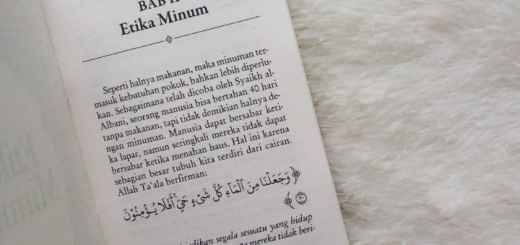 BAB II
Etika Minum
Seperti halnya makanan, maka minuman ter-
masuk kebutuhan pokok, bahkan lebih diperlu-
kan. Sebagaimana telah dicoba oleh Syaikh al-
Albani, seorang manusia bisa bertahan 40 hari
tanpa makanan, tapi tidak demikian halnya de-
ngan minuman. Manusia dapat bersabar keti-
ka lapar, namun seringkali mereka tidak dapat
bersabar ketika menahan haus. Hal ini karena
sebagian besar tubuh kita terdiri dari cairan.
Allah Ta'ala berfirman:
﴿ وَجَعَلْنَا مِنَ الْمَاءِ كُلَّ شَيْءٍ حَيٍّ أَفَلَا يُؤْمِنُونَ
﴾
segala sesuatu yang hidup
mereka tidak beri-